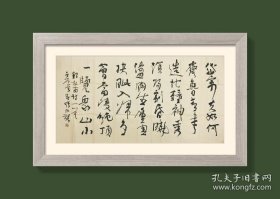 岱宗夫如何
齊魯青未了
造化鍾神秀
陰陽割昏曉
盪胸生層雲
決眥入歸鳥
會當凌絕頂
一覽眾山小
孔夫子旧书网